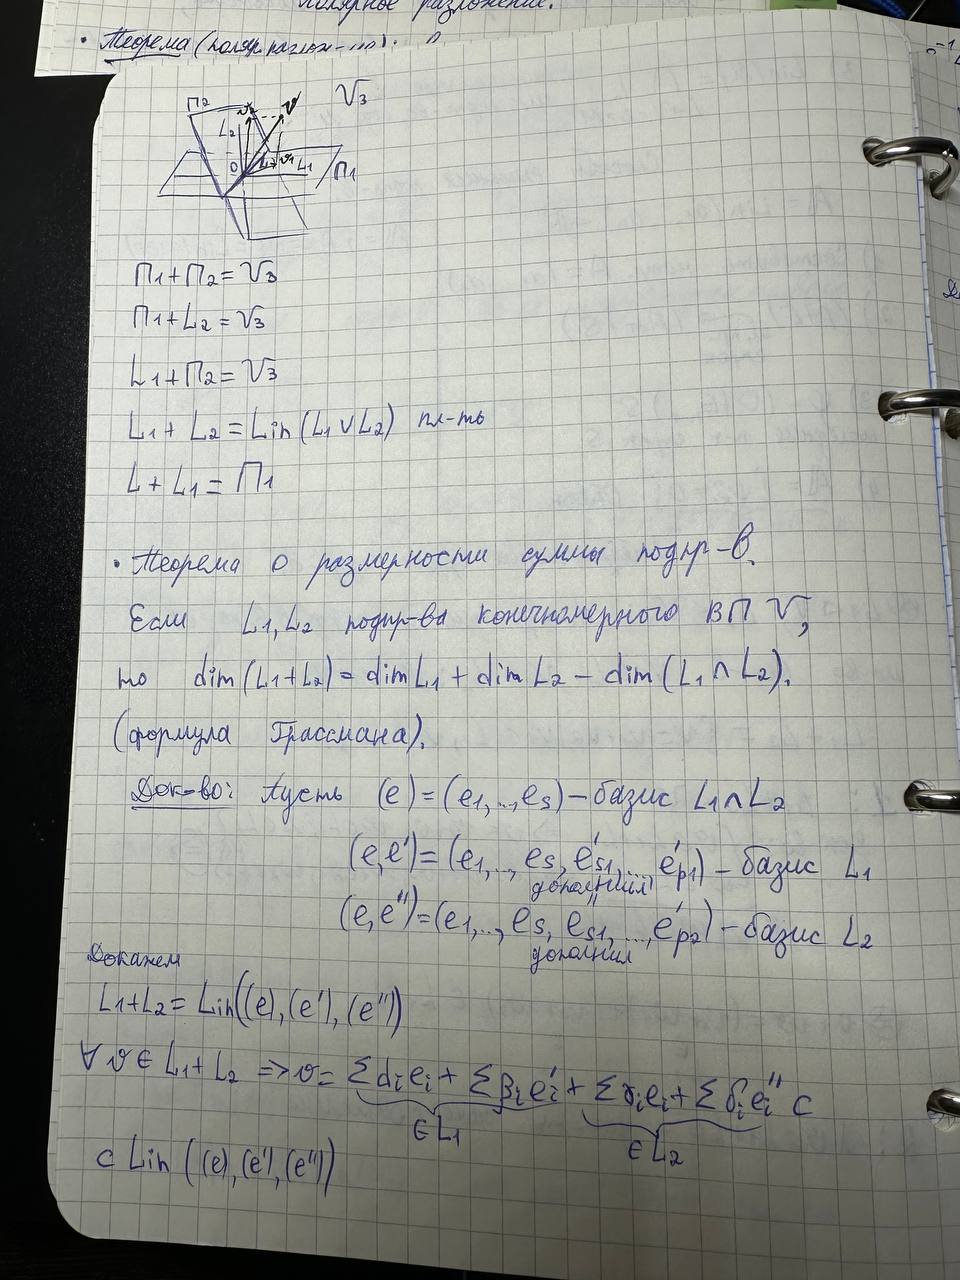 полярное разложение.
• Теорема (поляр разлож-
V3
П2
v2
v
L2
O
L
v1
L1
П1
П1+П2=V3
П1+L2=V3
L1+П2=V3
L1+L2=Lin(L1∪L2) пл-ть
L+L1=П1
• Теорема о размерности суммы подпр-в.
Если L1,L2 подпр-ва конечномерного ВП V,
то dim(L1+L2)=dimL1+dimL2-dim(L1∩L2).
(формула Грассмана).
Док-во: Пусть (e)=(e1,..,es)-базис L1∩L2
(e,e')=(e1,.., es,e's1,...,e'p1)-базис L1
дополнил
(e,e")=(e1,..,es,e"s1,...,e'p2)-базис L2
дополнил
Докажем
L1+L2=Lin((e),(e'),(e"))
∀v∈L1+L2 => v= Σαiei+Σβie'i+Σγiei+Σδie"i ⊂
∈L1
∈L2
⊂ Lin((e),(e'),(e"))